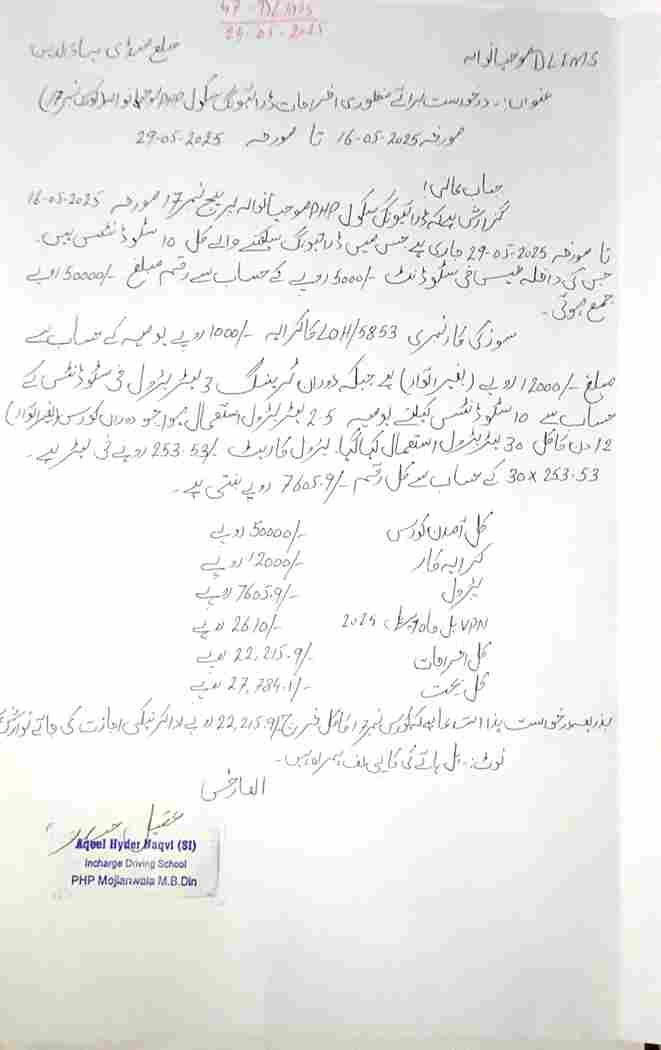 47-DLIMS
29-05-2025
DLIMS موجیانوالہ ضلع منڈی بہاؤالدین
عنوان:۔ درخواست برائے منظوری اخراجات ڈرائیونگ سکول PHP موجیانوالہ (کورس نمبر 17)
مورخہ 16-05-2025 تا مورخہ 29-05-2025
جناب عالی!
گزارش ہے کہ ڈرائیونگ سکول PHP موجیانوالہ پر بیج نمبر 17 مورخہ 16-05-2025
تا مورخہ 29-05-2025 جاری ہے جس میں ڈرائیونگ سیکھنے والے کل 10 سٹوڈنٹس ہیں۔
جن کی داخلہ فیس فی سٹوڈنٹ -/5000 روپے کے حساب سے رقم مبلغ -/50000 روپے
جمع ہوئی۔
سوزکی کار نمبری LOH/5853 کا کرایہ -/1000 روپے یومیہ کے حساب سے
مبلغ -/12000 روپے (بغیر اتوار) ہے جبکہ دوران ٹریننگ 3 لیٹر پٹرول فی سٹوڈنٹس کے
حساب سے 10 سٹوڈنٹس کیلئے یومیہ 2.5 لیٹر پٹرول استعمال ہوا جو دوران کورس (بغیر اتوار)
12 دن کا کل 30 لیٹر پٹرول استعمال کیا گیا۔ پٹرول کا ریٹ -/253.53 روپے فی لیٹر ہے۔
30x253.53 کے حساب سے کل رقم -/7605.9 روپے بنتی ہے۔
کل آمدن کورس -/50000 روپے
کرایہ کار -/12000 روپے
پٹرول -/7605.9 روپے
VPN بل ماہ اپریل 2025 -/2610 روپے
کل اخراجات -/22,215.9 روپے
کل بچت -/27,784.1 روپے
بذریعہ درخواست ہذا استدعا ہے کہ کورس نمبر 17 کا کل خرچ -/22,215.9 روپے ادا کرنیکی اجازت دی جائے
نوٹ:۔ بل ہائے کی کاپی لف ہمراہ ہیں۔
العارض
Aqeel Hyder Naqvi (SI)
Incharge Driving School
PHP Mojianwala M.B.Din